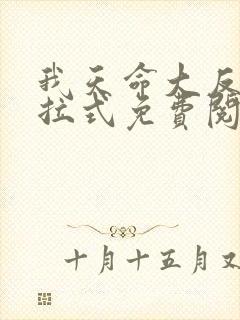 我天命大反
拉式免費閱
十月十五月又